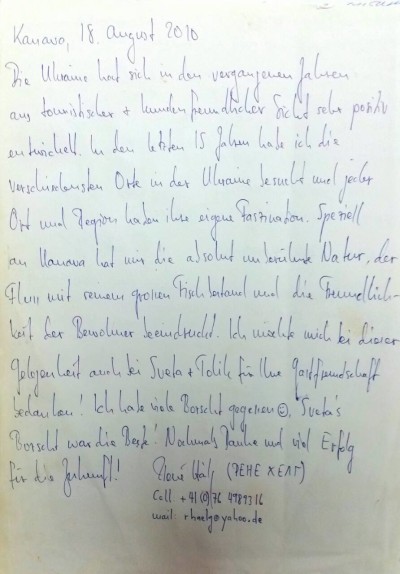 Kanava, 18. August 2010
Die Ukraine hat sich in den vergangenen Jahren
aus touristischer + kundenfreundlicher Sicht sehr positiv
entwickelt. In den letzten 15 Jahren habe ich die
verschiedensten Orte in der Ukraine besucht und jeder
Ort und Region haben ihre eigene Faszination. Speziell
an Kanava hat mir die absolut unberührte Natur, der
Fluss mit seinem grossen Fischbestand und die Freundlich-
keit der Bewohner beeindruckt. Ich möchte mich bei dieser
Gelegenheit auch bei Sveta + Tolik für Ihre Gastfreundschaft
bedanken! Ich habe viele Borscht gegessen ☺, Sveta's
Borscht war die Beste! Nochmals Danke und viel Erfolg
für die Zukunft! René Hälg (РЕНЕ ХЕЛГ)
Cell +41(0)76 4989316
mail rhaelg@yahoo.de